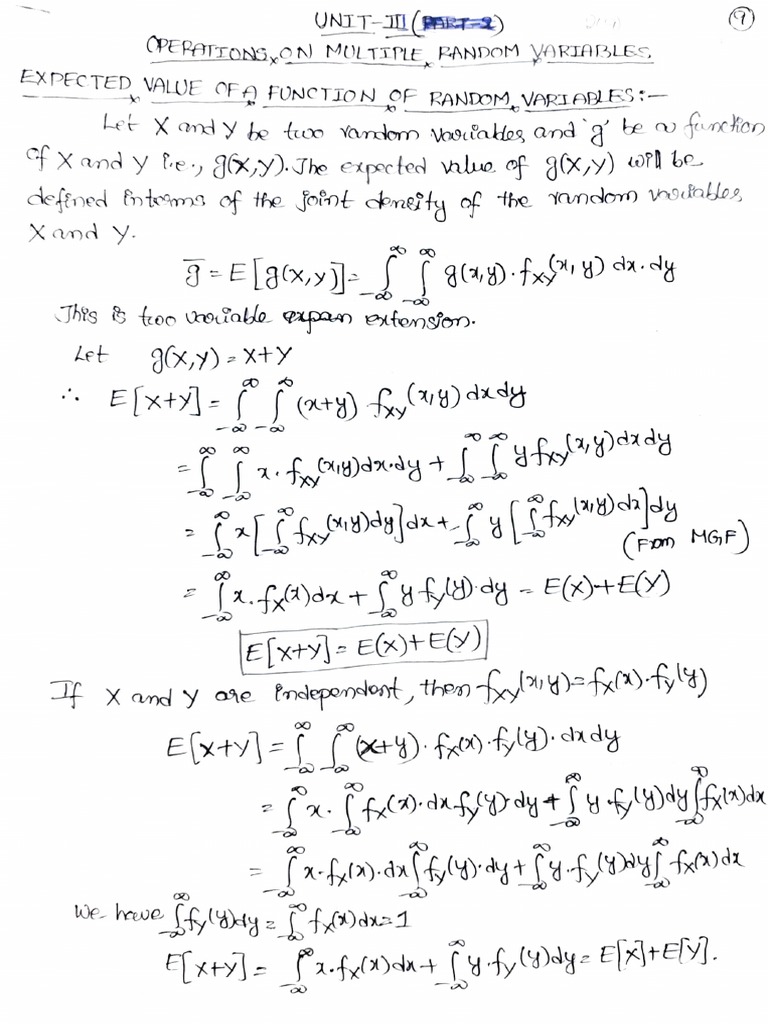 UNIT-III (PART-2)
9
OPERATIONS ON MULTIPLE RANDOM VARIABLES
EXPECTED VALUE OF A FUNCTION OF RANDOM VARIABLES:-
Let X and Y be two random variables and 'g' be a function
of X and Y i.e., g(X,Y). The expected value of g(X,Y) will be
defined interms of the joint density of the random variables
X and Y.
g̅ = E[g(x,y)] = ∫_{-∞}^{∞} ∫_{-∞}^{∞} g(x,y)·f_{XY}(x,y) dx·dy
This is two variable expan extension.
Let g(X,Y) = X+Y
∴ E[X+Y] = ∫_{-∞}^{∞} ∫_{-∞}^{∞} (x+y) f_{XY}(x,y) dx dy
= ∫_{-∞}^{∞} ∫_{-∞}^{∞} x·f_{XY}(x,y) dx·dy + ∫_{-∞}^{∞} ∫_{-∞}^{∞} y f_{XY}(x,y) dx dy
= ∫_{-∞}^{∞} x[∫_{-∞}^{∞} f_{XY}(x,y) dy] dx + ∫_{-∞}^{∞} y[∫_{-∞}^{∞} f_{XY}(x,y) dx] dy
(From MGF)
= ∫_{-∞}^{∞} x·f_X(x) dx + ∫_{-∞}^{∞} y f_Y(y)·dy = E(X)+E(Y)
E[X+Y] = E(X)+E(Y)
If X and Y are independent, then f_{XY}(x,y) = f_X(x)·f_Y(y)
E[X+Y] = ∫_{-∞}^{∞} ∫_{-∞}^{∞} (x+y)·f_X(x)·f_Y(y)·dx dy
= ∫_{-∞}^{∞} x·∫_{-∞}^{∞} f_X(x)·dx f_Y(y)·dy + ∫_{-∞}^{∞} y·f_Y(y) dy ∫_{-∞}^{∞} f_X(x) dx
= ∫_{-∞}^{∞} x·f_X(x)·dx ∫_{-∞}^{∞} f_Y(y)·dy + ∫_{-∞}^{∞} y·f_Y(y) dy ∫_{-∞}^{∞} f_X(x) dx
we have ∫_{-∞}^{∞} f_Y(y) dy = ∫_{-∞}^{∞} f_X(x) dx = 1
E[X+Y] = ∫_{-∞}^{∞} x·f_X(x) dx + ∫_{-∞}^{∞} y·f_Y(y) dy = E[X]+E[Y].